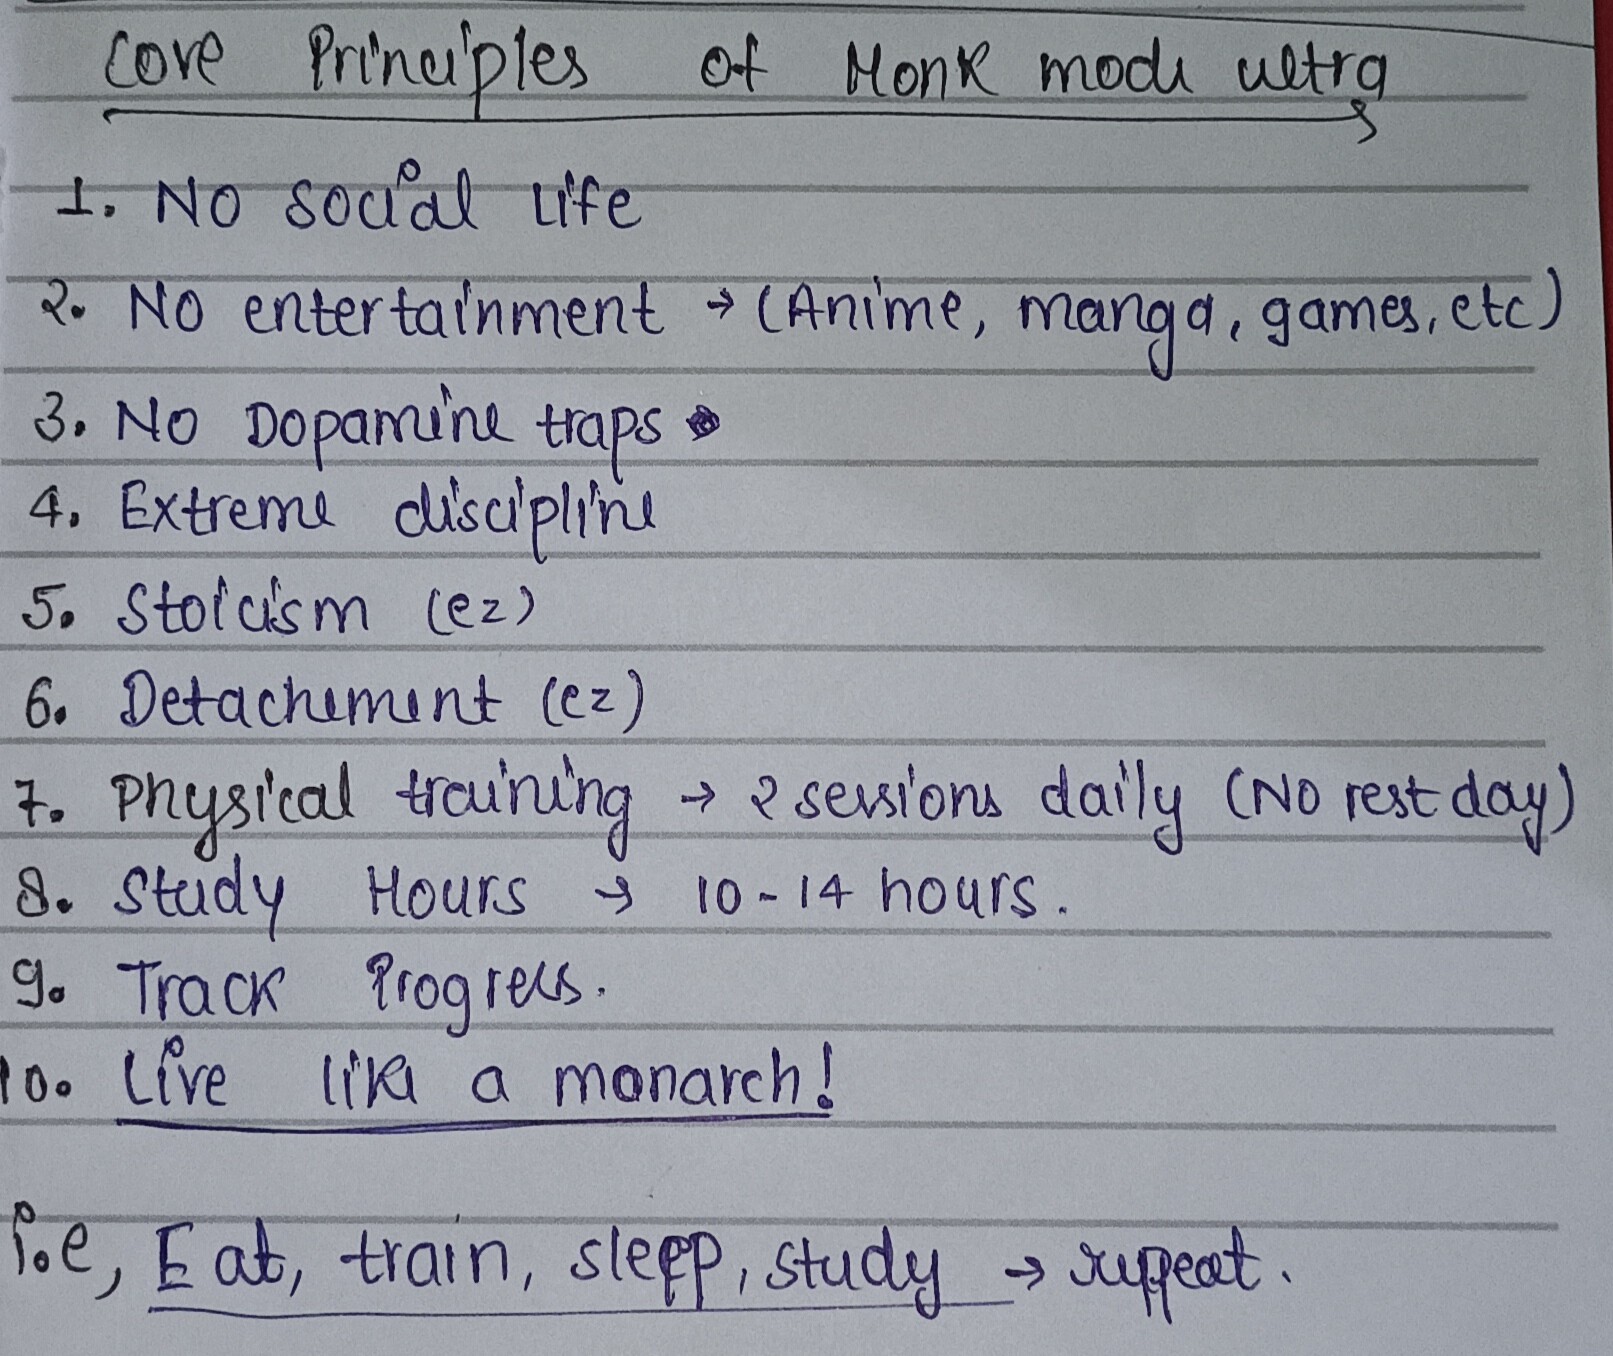 Core Principles of Monk mode ultra
1. No social life
2. No entertainment → (Anime, manga, games, etc)
3. No Dopamine traps
4. Extreme discipline
5. Stoicism (ez)
6. Detachement (ez)
7. Physical training → 2 sessions daily (No rest day)
8. Study Hours → 10-14 hours.
9. Track Progress.
10. Live like a monarch!
i.e, Eat, train, sleep, study → reppeat.